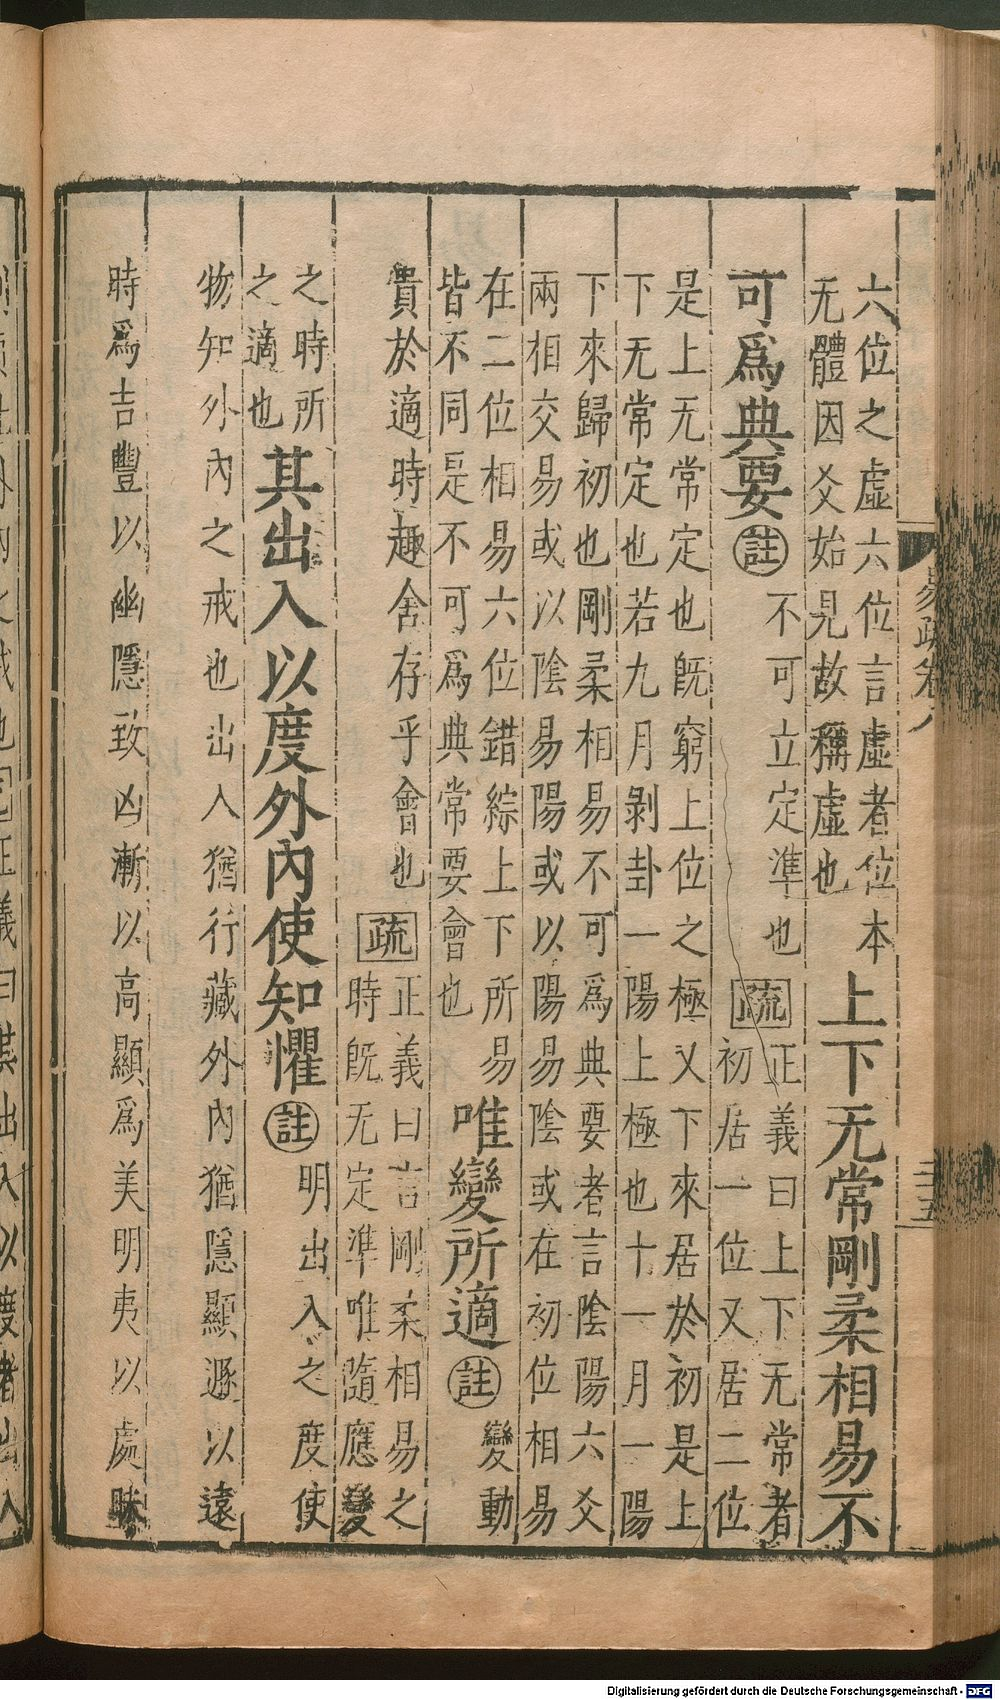 易疏卷八
六位之虛六位言虛者位本
无體因爻始見故稱虛也
上下无常剛柔相易不
可爲典要註不可立定準也疏正義曰上下无常者
初居一位又居二位
是上无常定也既窮上位之極又下來居於初是上
下无常定也若九月剝卦一陽上極也十一月一陽
下來歸初也剛柔相易不可爲典要者言陰陽六爻
兩相交易或以陰易陽或以陽易陰或在初位相易
在二位相易六位錯綜上下所易
皆不同是不可爲典常要會也
唯變所適註變動
貴於適時趣舍存乎會也疏正義曰言剛柔相易之
時既无定準唯隨應變
之時所
之適也
其出入以度外內使知懼註明出入之度使
物知外內之戒也出入猶行藏外內猶隱顯遯以遠
時爲吉豐以幽隱致凶漸以高顯爲美明夷以處昧
Digitalisierung gefördert durch die Deutsche Forschungsgemeinschaft - DFG